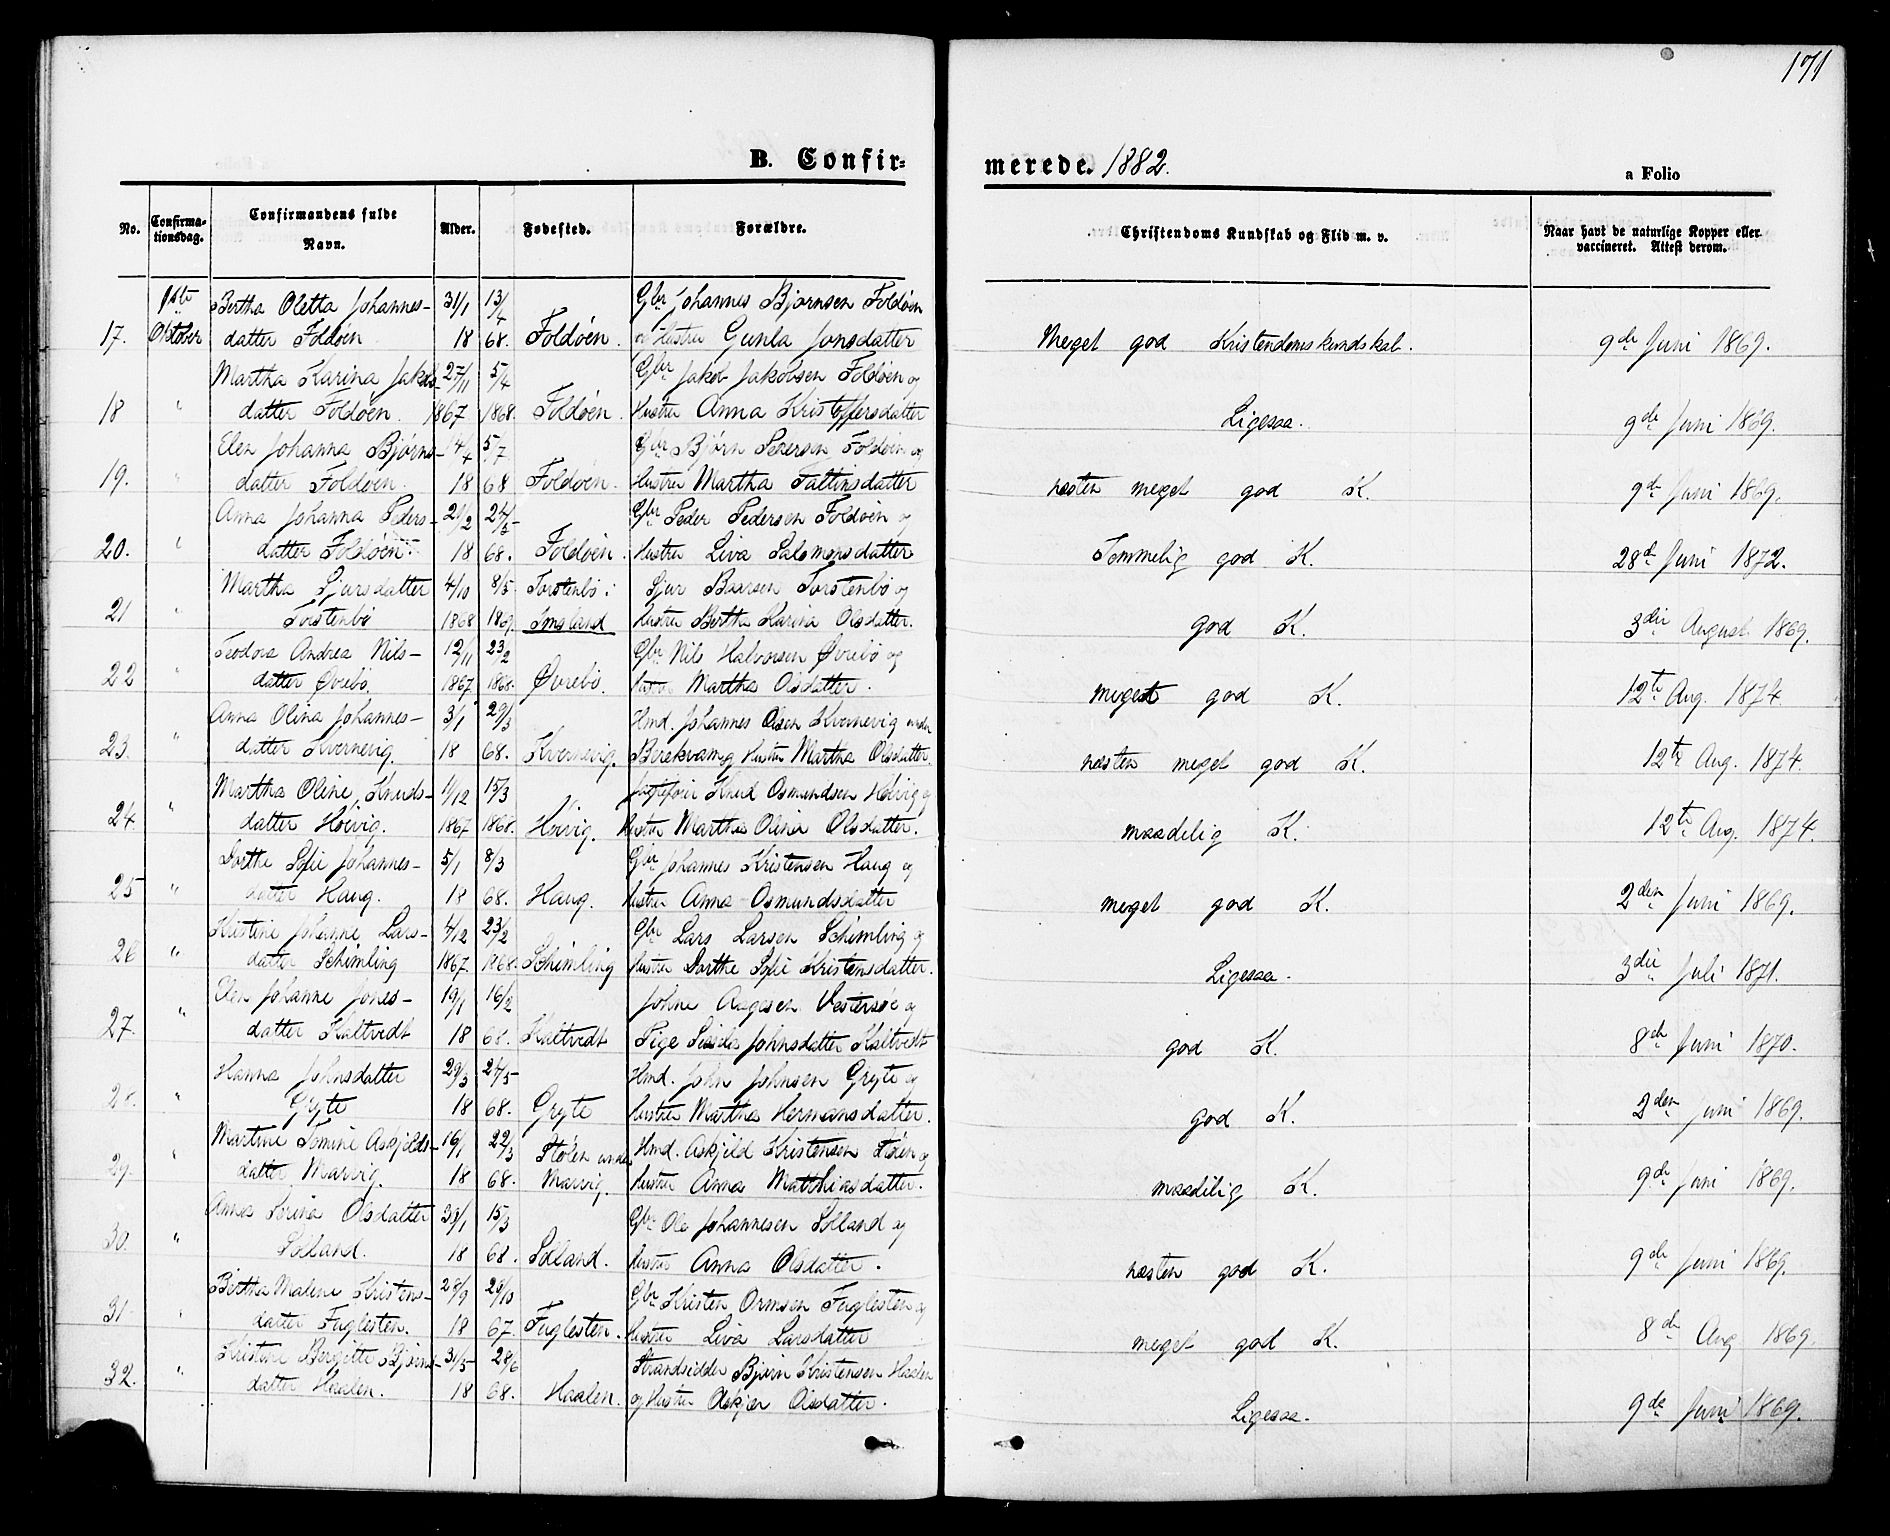 171
B. Confir-
merede. 1882.
a Folio
No.
Confirma-
tionsdag.
Confirmandens fulde
Navn.
Alder.
Fødested.
Forældre.
Christendoms Kundskab og Flid m. v.
Naar havt de naturlige Kopper eller
vaccineret. Attest derom.
1ste Bertha Oletta Johannes- 31/1 13/4 Gbr Johannes Bjørnsen Foldøen
17. Oktober datter Foldøen 18 68. Foldøen. og Hustru Gunla Jonsdatter Meget god Kristendomskundskab. 9de Juni 1869.
Martha Karina Jakobs- 27/11 5/4 Gbr Jakob Jakobsen Foldøen og
18 " datter Foldøen. 1867 1868. Foldøen. Hustru Anna Kristoffersdatter Ligesaa. 9de Juni 1869.
Elen Johanna Bjørns- 14/4 5/7 Gbr Bjørn Pedersen Foldøen og
19. " datter Foldøen. 18 68 Foldøen. Hustru Martha Faltinsdatter næsten meget god K. 9de Juni 1869.
Anna Johanna Peders- 21/2 24/5 Gbr Peder Pedersen Foldøen og
20. " datter Foldøen 18 68. Foldøen. Hustru Liva Salomonsdatter Temmelig god K. 28de Juni 1872.
Martha Sjursdatter 4/10 8/5 Torstenbø i Sjur Baarsen Torstenbø og
21 " Torstenbø 1868 1869. Imsland Hustru Bertha Karina Olsdatter. god K. 3die August 1869.
Teodora Andrea Nils- 12/11 23/2 Gbr Nils Halvorsen Øvrebø og
22 " datter Øvrebø. 1867 1868. Øvrebø. Hustru Martha Olsdatter. meget god K. 12te Aug. 1874.
Anna Olina Johannes- 3/1 29/3 Hmd. Johannes Olsen Kvernevig under
23. " datter Kvernevig. 18 68. Kvernevig. Berekvam og Hustru Martha Olsdatter. næsten meget god K. 12te Aug. 1874.
Martha Oline Knuds- 1/12 15/3 Knud Osmundsen Høivig og
24. " datter Høivig. 1867 1868. Høivig. Hustru Martha Olina Olsdatter. maadelig K. 12te Aug. 1874.
Dorthe Sofie Johannes- 5/1 8/3 Gbr Johannes Kristensen Haug og
25 " datter Haug. 18 68. Haug. Hustru Anna Osmundsdatter meget god K. 2den Juni 1869.
Kristine Johanne Lars- 4/12 23/2 Gbr Lars Larsen Schimling og
26 " datter Schimling 1867. 1868. Schimling Hustru Dorthe Sofie Kristensdatter. Ligesaa. 3die Juli 1871.
Elen Johanne Jones- 19/1 16/2 Johne Aagesen Vestersøe og
27. " datter Kaltvedt 18 68. Kaltvedt Pige Johnsdatter Kaltvedt god K. 8de Juni 1870.
Hanna Johnsdatter 29/3 24/5 Hmd. John Johnsen Gryte og
28. " Gryte 18 68. Gryte Hustru Martha Hermansdatter. god K. 2den Juni 1869.
Martine Tomine Askjelds- 16/1 22/3 Stølen under Hmd. Askjeld Kristensen Stølen og
29. " datter Marvig. 18 68. Marvig. Hustru Anna Matthiasdatter. maadelig K. 9de Juni 1869.
Anna Serina Olsdatter 15/3 Gbr Ole Johannesen Solland og
30. " Solland. 18 68. Solland. Hustru Anna Olsdatter. næsten god K. 9de Juni 1869.
Bertha Malene Kristens- 28/9 20/10 Gbr Kristen Ormsen Fuglesten og
31 " datter Fuglesten. 18 67. Fuglesten. Hustru Liva Larsdatter meget god K. 8de Aug 1869.
Kristine Bergitte Bjørns- 31/5 28/6 Strandsidder Bjørn Kristensen Haalen
32. " datter Haalen. 18 68. Haalen. og Hustru Askjer Olsdatter. Ligesaa. 9de Juni 1869.